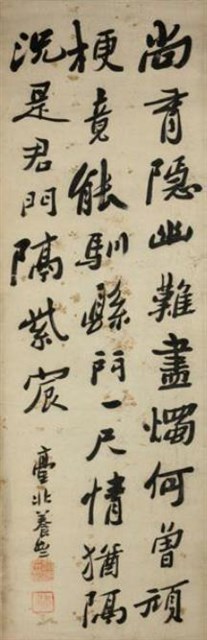 尚有隱幽難盡燭何曾頑
梗竟能馴縣門一尺情猶隔
況是君門隔紫宸
臺北養